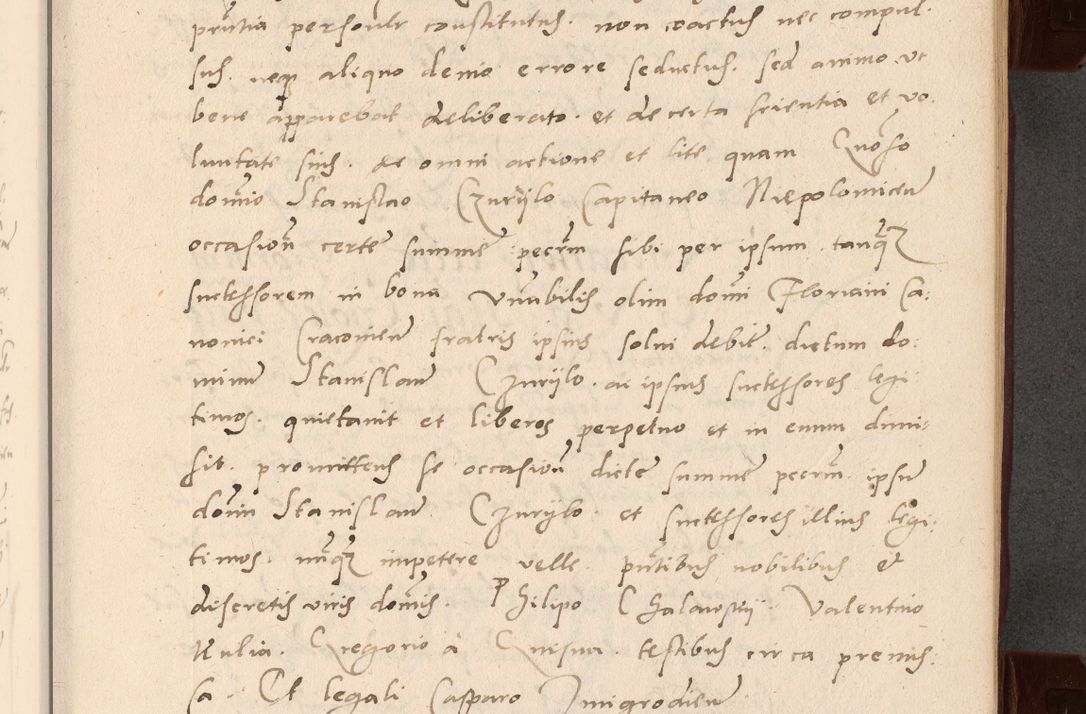 pñtia personlr constitutus. non coactus nec compul-
sus. neq3 aliquo demo errore seductus. sed animo. vt
bene apparebat deliberato. et de certa scientia et vo-
luntate suis. de omni actione et lite quam
domio Stanislao Czuryło Capitaneo Niepolomiceñ
occasioñ certe summe pecrm sibi per ipsum. tanq3
successorem in bona Vnabilis olim domi Floriani Ca-
nonici Cracovieñ fratris ipsius solui debit. dictum do-
minu Stanislau Czuryło. ac ipsius successores legi-
timos. quietauit et liberos perpetuo et in euum dimi-
sit. promittens se occasioñ dicte summe pecrm ipsu
domi Stanislau Czuryło. et successores illius legi-
timos. nunq3 impetere velle. pñtibus nobilibus et
discretis viris domis. Philipo Chalawskij. Valentino
Kulia. Gregorio a testibus circa premis-
sa. Et legali Casparo Jmigrodieñ